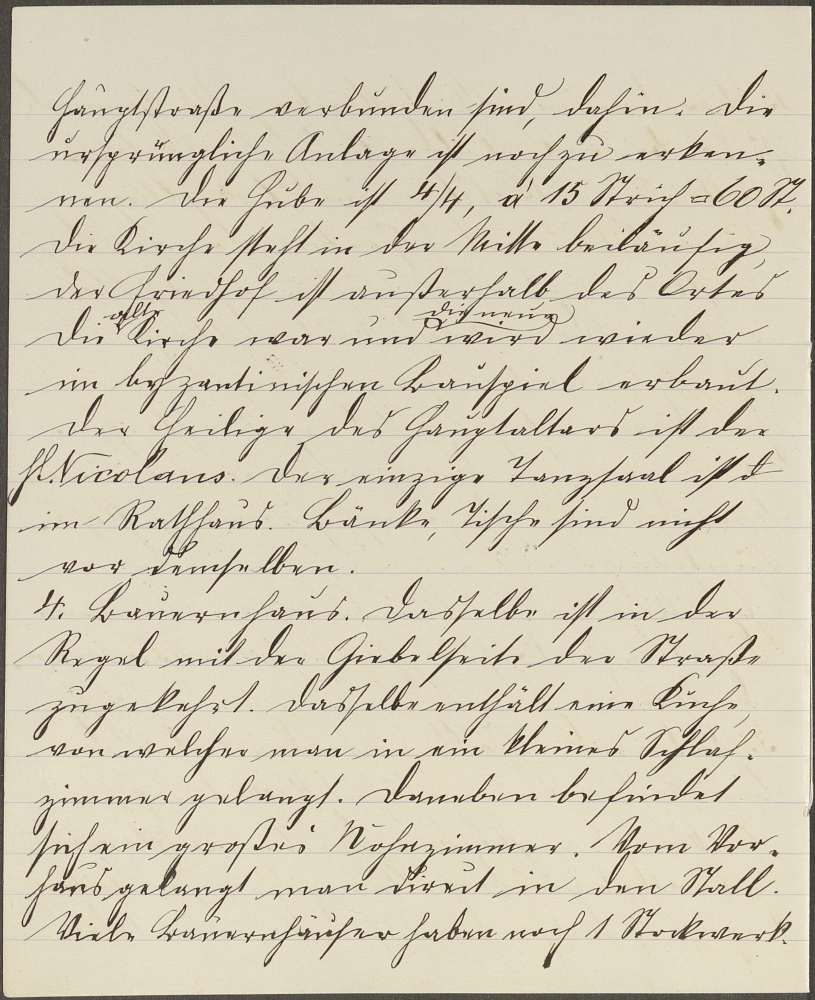 Hauptstraße verbunden sind, dahin. Die
ursprüngliche Anlage ist noch zu erken-
nen. Die Hube ist 4/4, à 15 Strich = 60 St.
Die Kirche steht in der Mitte beiläufig,
der Friedhof ist außerhalb des Ortes
Die alte Kirche war und die neue wird wieder
im byzantinischen Baustiel erbaut.
Der Heilige des Hauptaltars ist der
hl. Nicolaus. Der einzige Tanzsaal ist
im Rathhaus. Bänke, Tische sind nicht
vor demselben.
4. Bauernhaus. Dasselbe ist in der
Regel mit der Giebelseite der Straße
zugekehrt. Dasselbe enthält eine Küche,
von welcher man in ein kleines Schlaf-
zimmer gelangt. Daneben befindet
sich ein großes Wohnzimmer. Vom Vor-
haus gelangt man direct in den Stall.
Viele Bauernhäuser haben noch 1 Stockwerk.